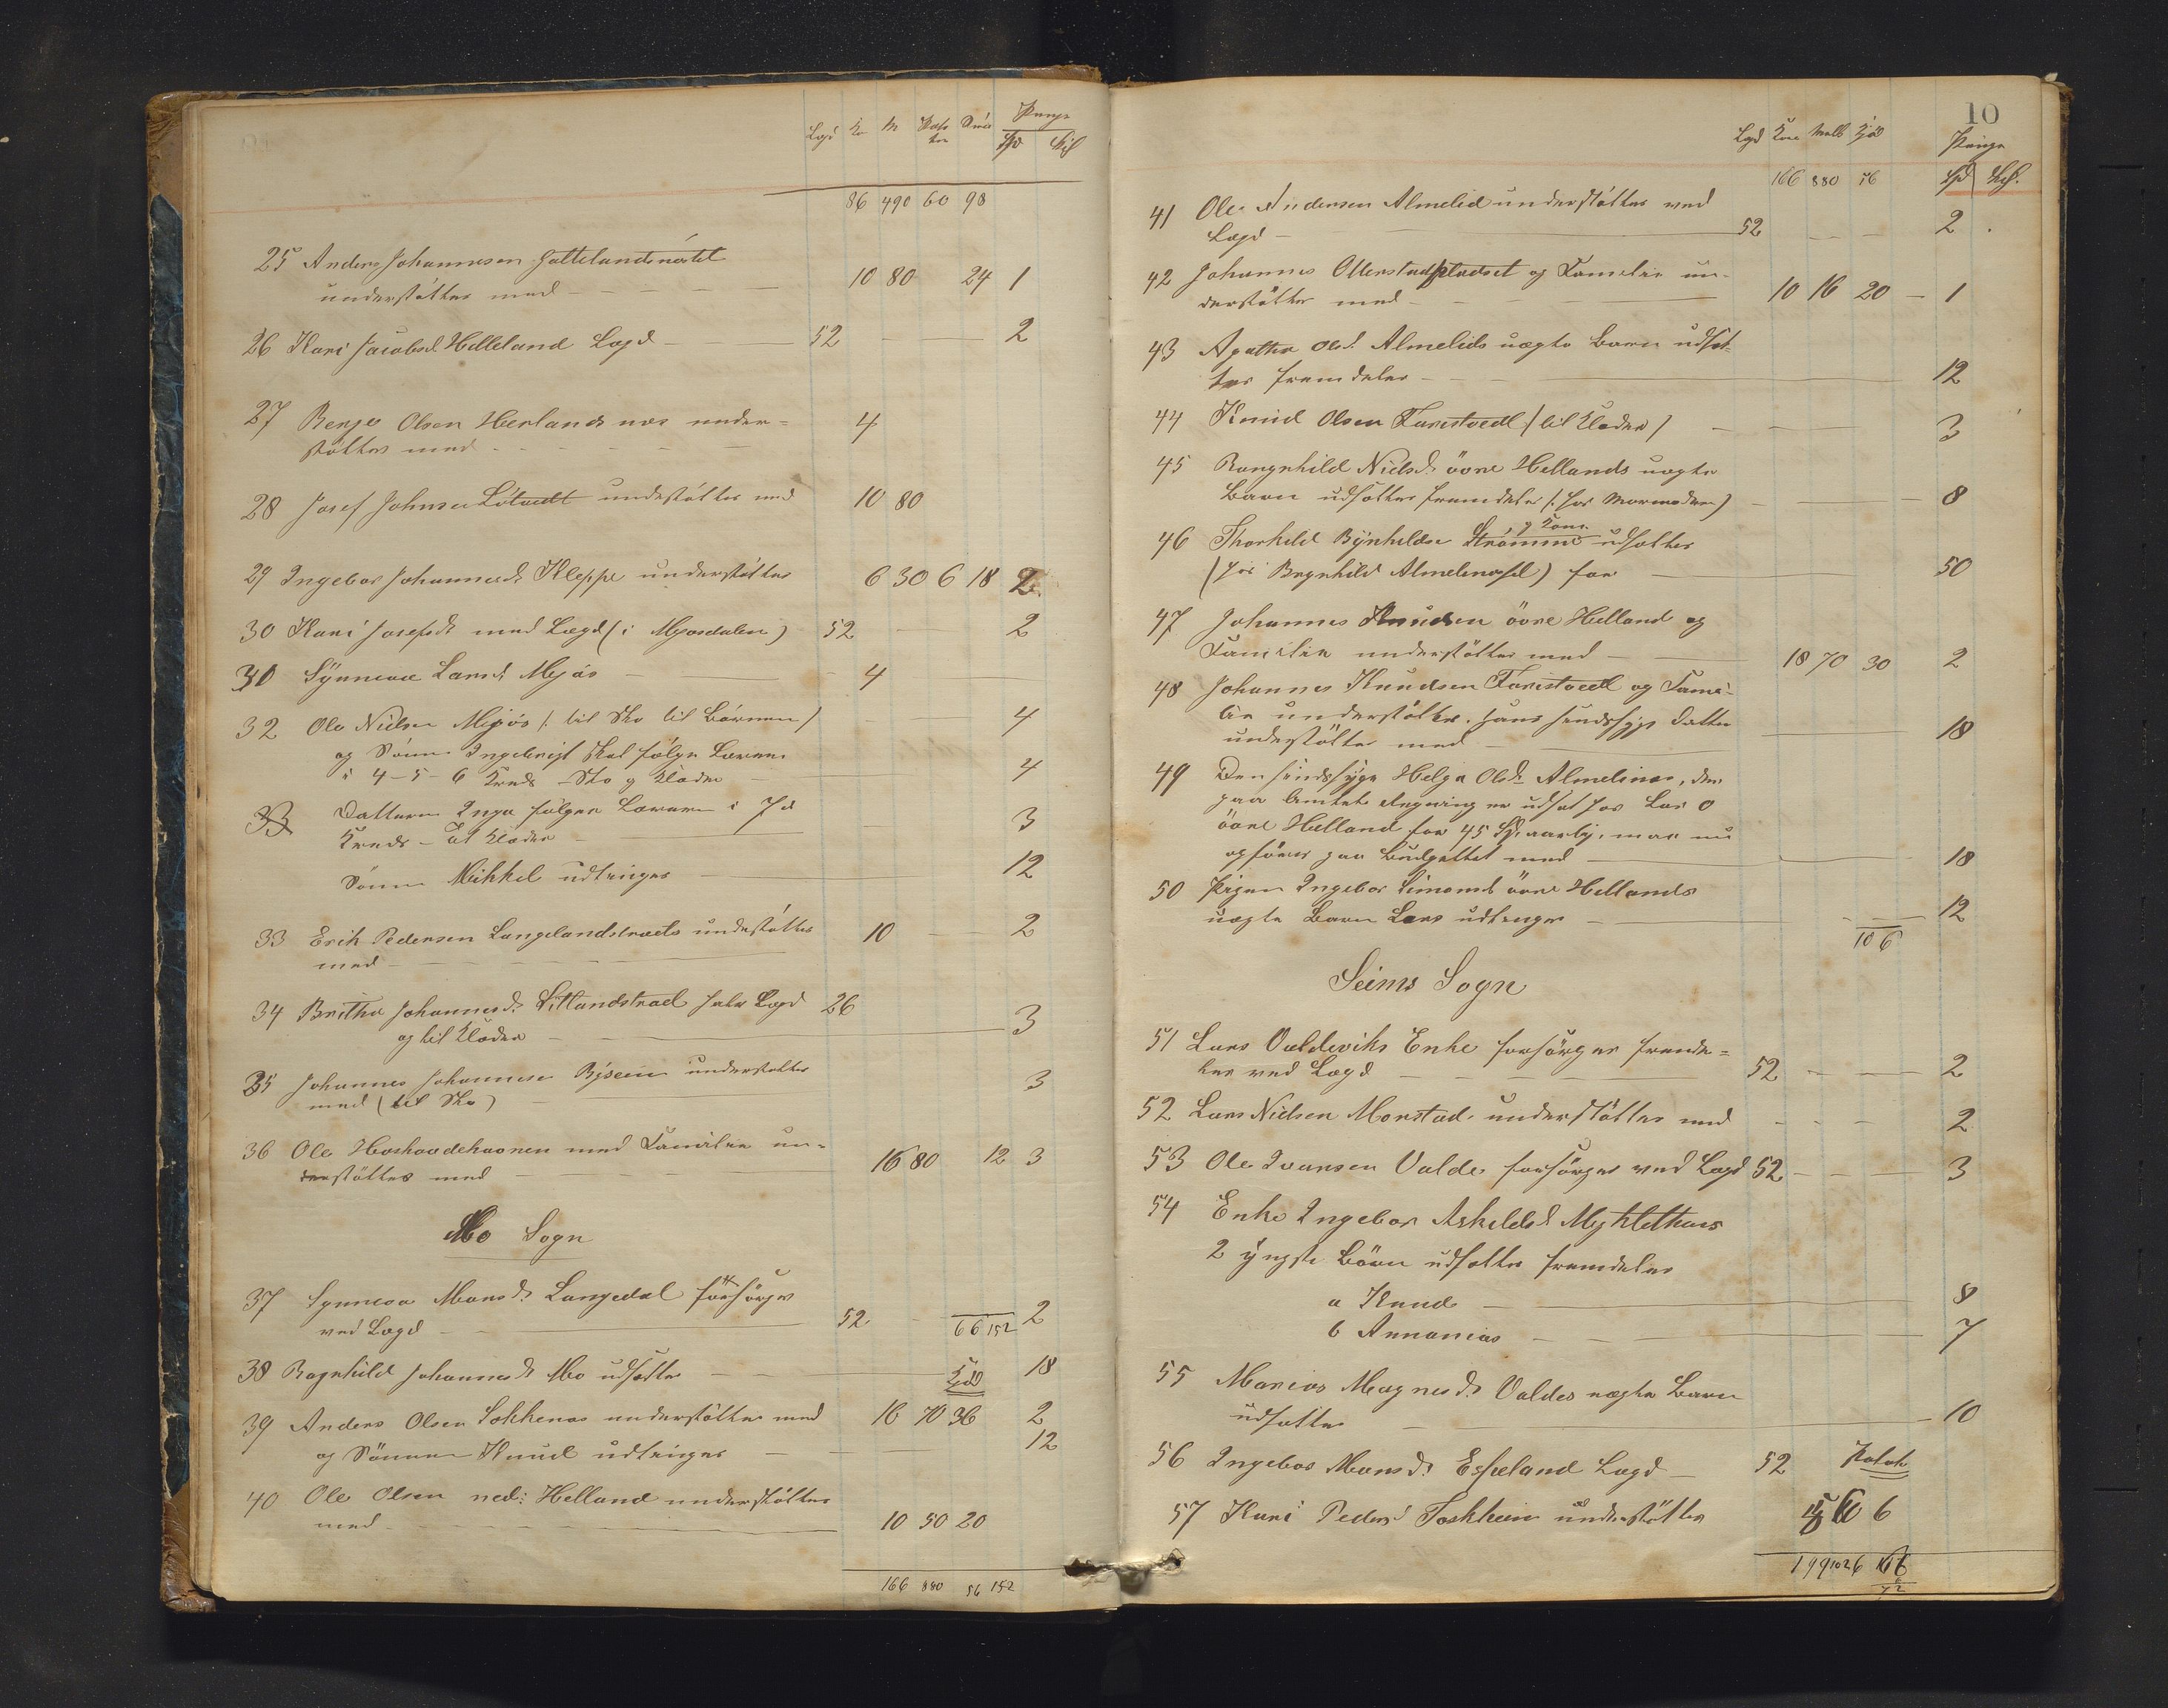 Lægd Kor M Pote Sild Penge
ter Spd Skil
86 490 60 98
25 Anders Johannesen Hattelandsnæstet
understöttes med 10 80 24 1
26 Kari Jacobsd. Helleland Lægd 52 2
27 Olsen Herlands under=
støttes med 4
28 Josef Johnsen understöttes med 10 80
29 Ingebor Johannesdr Kleppe understöttes 6 30 6 18 2
30 Kari Josefsdr med Lægd (i Mjosdalen) 52 2
31 Synneva Larsd. Mjøs 4
32 Ole Nielsen Mjøs (: til Sko til Børnene) 4
og Sönnen Ingebrigt skal følge Læreren
i 4-5-6 Kreds - Sko og Klæder 4
33 Datteren Inga følger Læreren i 7de
Kreds - til Klæder 3
Sönnen Mikkel udtinges 12
33 Erik Pedersen Langelandstræet understöttes
med 10 2
34 Britha Johannesdr. halv Lægd 26
og til Klæder 3
35 Johannes Johannesen understøttes
med (til Sko) 3
36 Ole med Familie un=
derstöttes med 16 80 12 3
Mo Sogn
37 Synneva Monsdr. Langedal forsörges
ved Lægd 52 66 152 2
38 Ragnhild Johannesdr Mo udsættes 18
Kjöd
39 Anders Olsen Sokkenæs understöttes med 16 70 36 2
og Sönnen Knud udtinges 12
40 Ole Olsen ned: Helland understöttes
med 10 50 20
166 880 56 152
10
Lægd Korn Malt Kjöd Penge
166 880 56 Spd Sk.
41 Ole Andersen Almelid understöttes ved
Lægd 52 2
42 Johannes Otterstadpladset og Familie un-
derstöttes med 10 16 20 1
43 Agatha Olsd. Almelids uægte Barn udsæt-
tes fremdeles 12
44 Knud Olsen Farestvedt (til Klæder) 3
45 Rangnhild Nielsdr. övre Hellands uægte
Barn udsættes fremdeles (: hos Mormoderen) 8
46 Thorkild Strömme og Kone udsættes
(hos Brynhild) for 50
47 Johannes Knudsen övre Helland og
Familie understöttes med 18 70 30 2
48 Johannes Knudsen Farestvedt og Fami-
lie understöttes. hans sindssyge Datter
understöttes med 18
49 Den sindssyge Helga Olsdr Almelinæs, der
paa Amtets Regning er udsat hos Lars O
övre Helland for 45 Spd. aarlig, maa nu
opföres paa Budgettet med 18
50 Pigen Ingebor Simonsd övre Hellands
uægte Barn Lars udtinges 12
106
Seims Sogn
51 Lars Valdeviks Enke forsörges fremde=
les ved Lægd 52 2
52 Lars Nielsen Monstad understöttes med 2
53 Ole Ivarsen Valde forsörges ved Lægd 52 3
54 Enke Ingebor Askeldsd. Myklethuns
2 yngste Börn udsættes fremdeles
a Knud 8
b Annanias 7
55 Marias Magnesdr. Valdes uægte Barn
udsættes 10
56 Ingebor Monsdr. Espeland Lægd 52 Potet
57 Kari Pedersd understöttes 60 6
199 1026 106